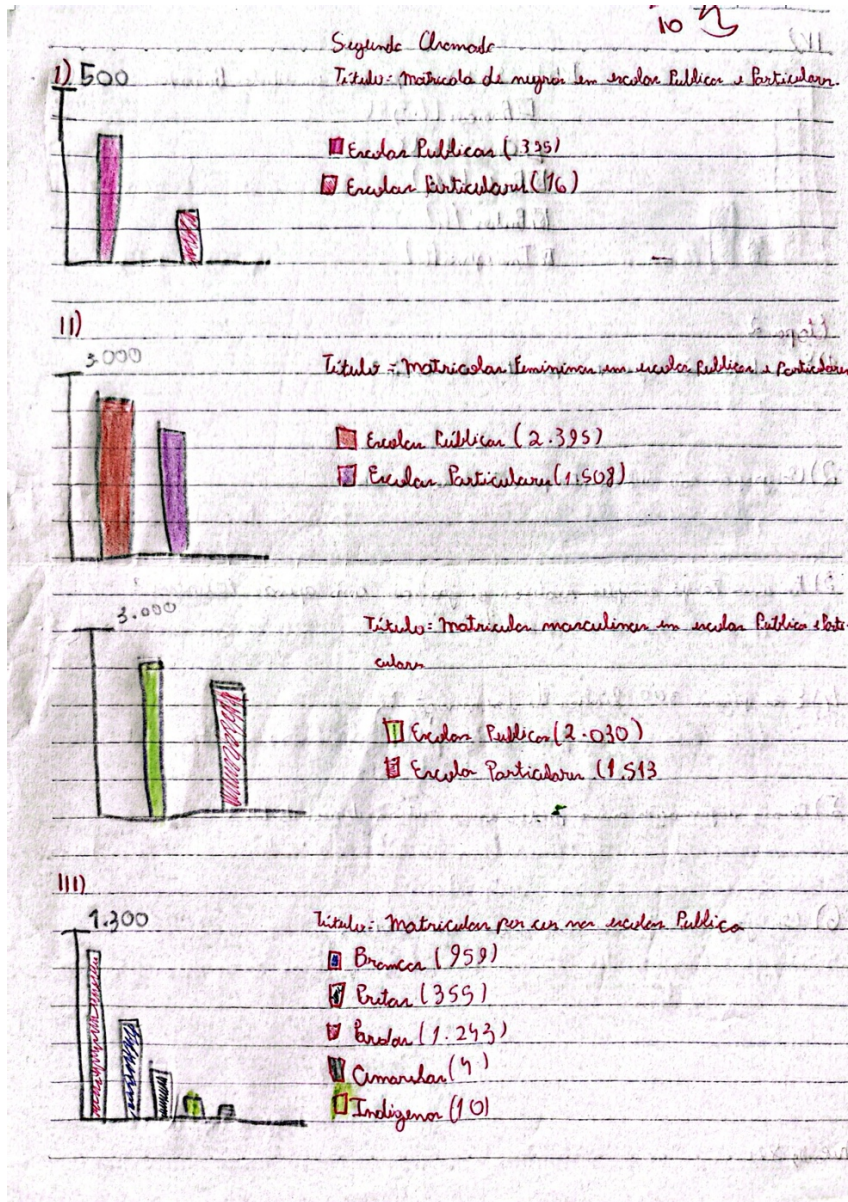 10
Segunda Chamada
I) 500
Título = Matricola de negros em escolas Publicas e Particulares.
Escolas Publicas (355)
Escolas Particulares (76)
II)
3.000
Título = Matricolas Femininas em escolas Publicas e Particulares
Escolas Públicas (2.395)
Escolas Particulares (1.508)
3.000
Título = Matriculas masculinas em escolas Publica e Parti-
culares
Escolas Publicas (2.030)
Escolas Particulares (1.513
III)
1.300
Título = Matriculas por cor nas escolas Publica
Brancas (959)
Pretas (355)
Pardas (1.243)
Amarelas (4)
Indígenas (10)